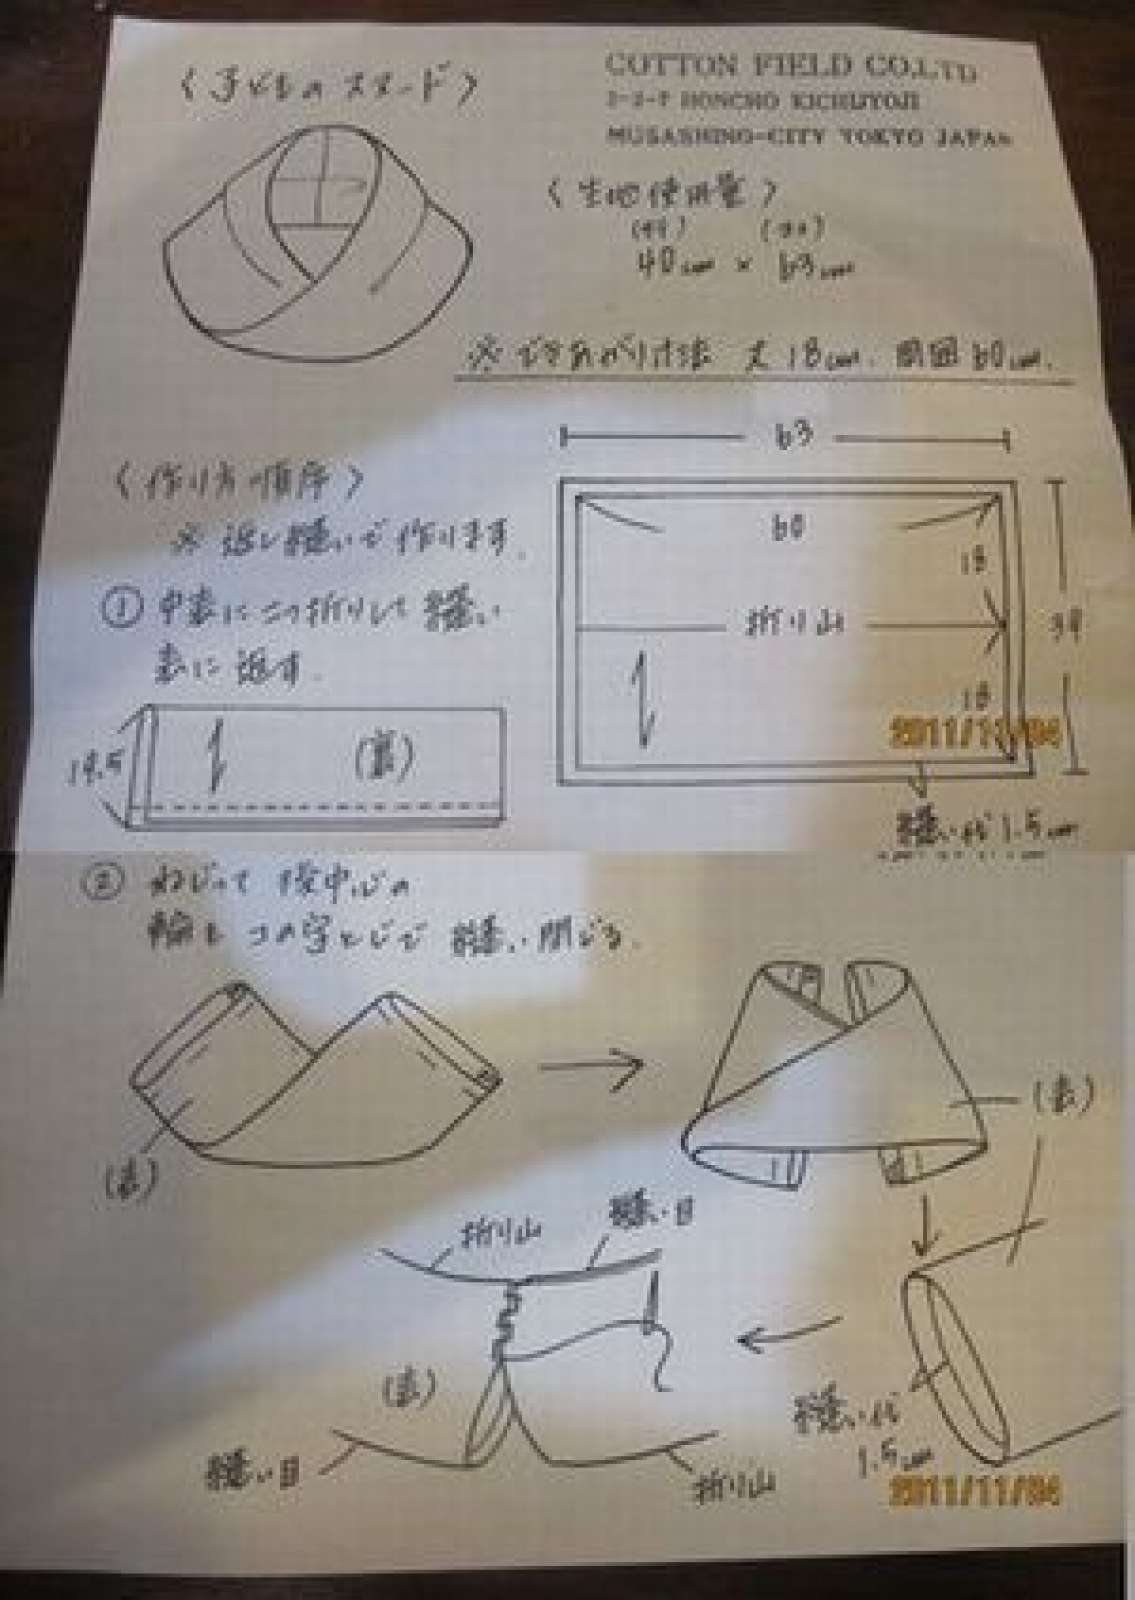 〈子どものスヌード〉
COTTON FIELD CO.LTD
HONCHO KICHIJYOJI
MUSASHINO-CITY TOKYO JAPAN
〈生地使用量〉
40cm × 63cm
※できあがり寸法 丈18cm. 周囲60cm.
〈作り方順序〉
※返し縫いで作ります.
① 中表に二つ折りして縫い
表に返す.
63
60
18
折り山
39
18
縫い代1.5cm
2011/11/04
19.5
(裏)
② ねじって後中心の
輪をコの字とじで縫い閉じる.
(表)
(表)
折り山
縫い目
(表)
縫い目
折り山
縫い代
1.5cm
2011/11/04